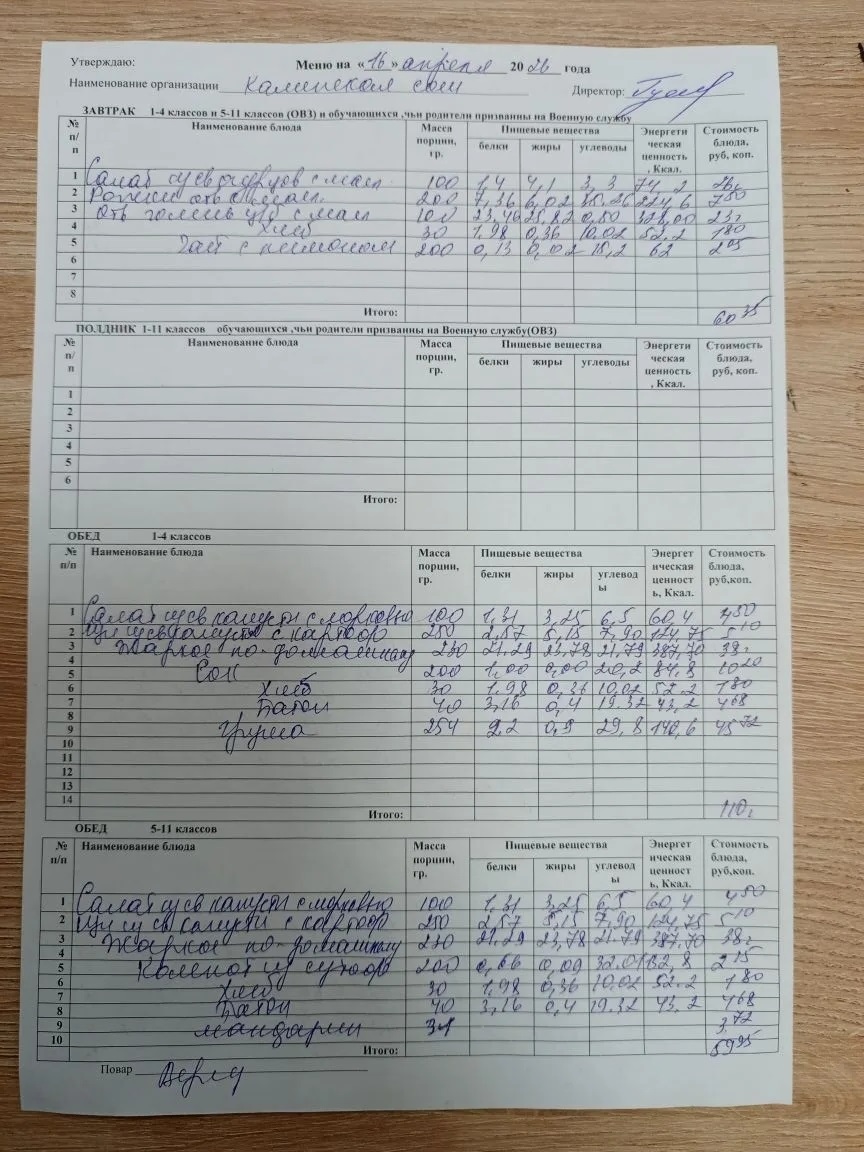 Утверждаю: Меню на « 16 » апреля 2026 года
Наименование организации Каминская сош Директор:
ЗАВТРАК 1-4 классов и 5-11 классов (ОВЗ) и обучающихся ,чьи родители призванны на Военную службу
№ п/п Наименование блюда Масса порции, гр. Пищевые вещества белки жиры углеводы Энергетическая ценность, Ккал. Стоимость блюда, руб, коп.
1 Салат из св огурцов с масл 100 1,4 4,1 3,3 74,2
2 Рожки отв с масл. 200 7,36 6,02 35,26 224,6 7 50
3 Отв голень ц/б с масл 100 23,46 25,82 0,50 328,00 23
4 Хлеб 30 1,98 0,36 10.02 52.2 1 80
5 Чай с лимоном 200 0,13 0,02 15,2 62 2 05
6
7
8
Итого: 60 35
ПОЛДНИК 1-11 классов обучающихся ,чьи родители призванны на Военную службу(ОВЗ)
№ п/п Наименование блюда Масса порции, гр. Пищевые вещества белки жиры углеводы Энергетическая ценность, Ккал. Стоимость блюда, руб, коп.
1
2
3
4
5
6
Итого:
ОБЕД 1-4 классов
№ п/п Наименование блюда Масса порции, гр. Пищевые вещества белки жиры углеводы Энергетическая ценность, Ккал. Стоимость блюда, руб,коп.
1 Салат из св капусты с морковью 100 1,31 3,25 6,5 60,4 4 50
2 Щи из св капусты с картоф 250 2,57 5,15 7,90 124,75 5 10
3 Жаркое по-домашнему 230 21.29 23,78 21.79 387,70 38
4
5 Сок 200 1,00 0,00 20,2 84,8 10 20
6 Хлеб 30 1,98 0,36 10,02 52.2 1 80
7 Батон 40 3,16 0,4 19.32 43,2 4 68
8
9 Груша 254 2,2 0,9 29,8 140,6 45 72
10
11
12
13
14
Итого: 110
ОБЕД 5-11 классов
№ п/п Наименование блюда Масса порции, гр. Пищевые вещества белки жиры углеводы Энергетическая ценность, Ккал. Стоимость блюда, руб,коп.
1 Салат из св капусты с морковью 100 1,31 3,25 6,5 60,4 4 50
2 Щи из св капусты с картоф 250 2,57 5,15 7,90 124,75 5 10
3 Жаркое по-домашнему 230 21.29 23,78 21.79 387.70 38
4
5 Компот из сухофр 200 0,66 0,09 32.01 132,8 2 15
6
7 Хлеб 30 1,98 0,36 10,02 52.2 1 80
8 Батон 40 3,16 0,4 19.32 43,2 4 68
9 мандарин 31 3.72
10
Итого: 59 95
Повар